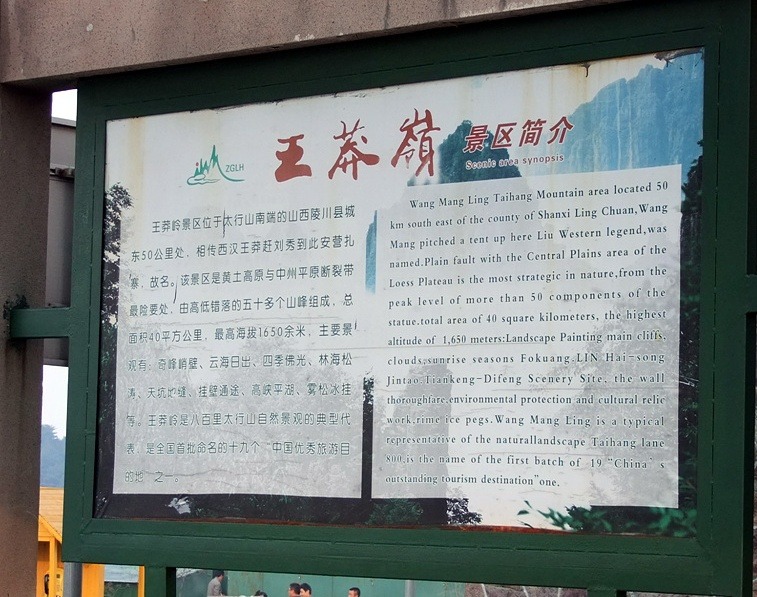 ZGLH
王莽嶺 景区简介
Scenic area synopsis
王莽岭景区位于太行山南端的山西陵川县城
东50公里处，相传西汉王莽赶刘秀到此安营扎
寨，故名。该景区是黄土高原与中州平原断裂带
最险要处，由高低错落的五十多个山峰组成，总
面积40平方公里，最高海拔1650余米，主要景
观有：奇峰峭壁、云海日出、四季佛光、林海松
涛、天坑地缝、挂壁通途、高峡平湖、雾松冰挂
等。王莽岭是八百里太行山自然景观的典型代
表，是全国首批命名的十九个“中国优秀旅游目
的地”之一。
Wang Mang Ling Taihang Mountain area located 50
km south east of the county of Shanxi Ling Chuan,Wang
Mang pitched a tent up here Liu Western legend,was
named.Plain fault with the Central Plains area of the
Loess Plateau is the most strategic in nature,from the
peak level of more than 50 components of the
statue.total area of 40 square kilometers, the highest
altitude of 1,650 meters:Landscape Painting main cliffs,
clouds,sunrise seasons Fokuang LIN Hai-song
Jintao,Tiankeng-Difeng Scenery Site, the wall
thoroughfare,environmental protection and cultural relic
work,rime ice pegs.Wang Mang Ling is a typical
representative of the naturallandscape Taihang lane
800,is the name of the first batch of 19 "China's
outstanding tourism destination"one.